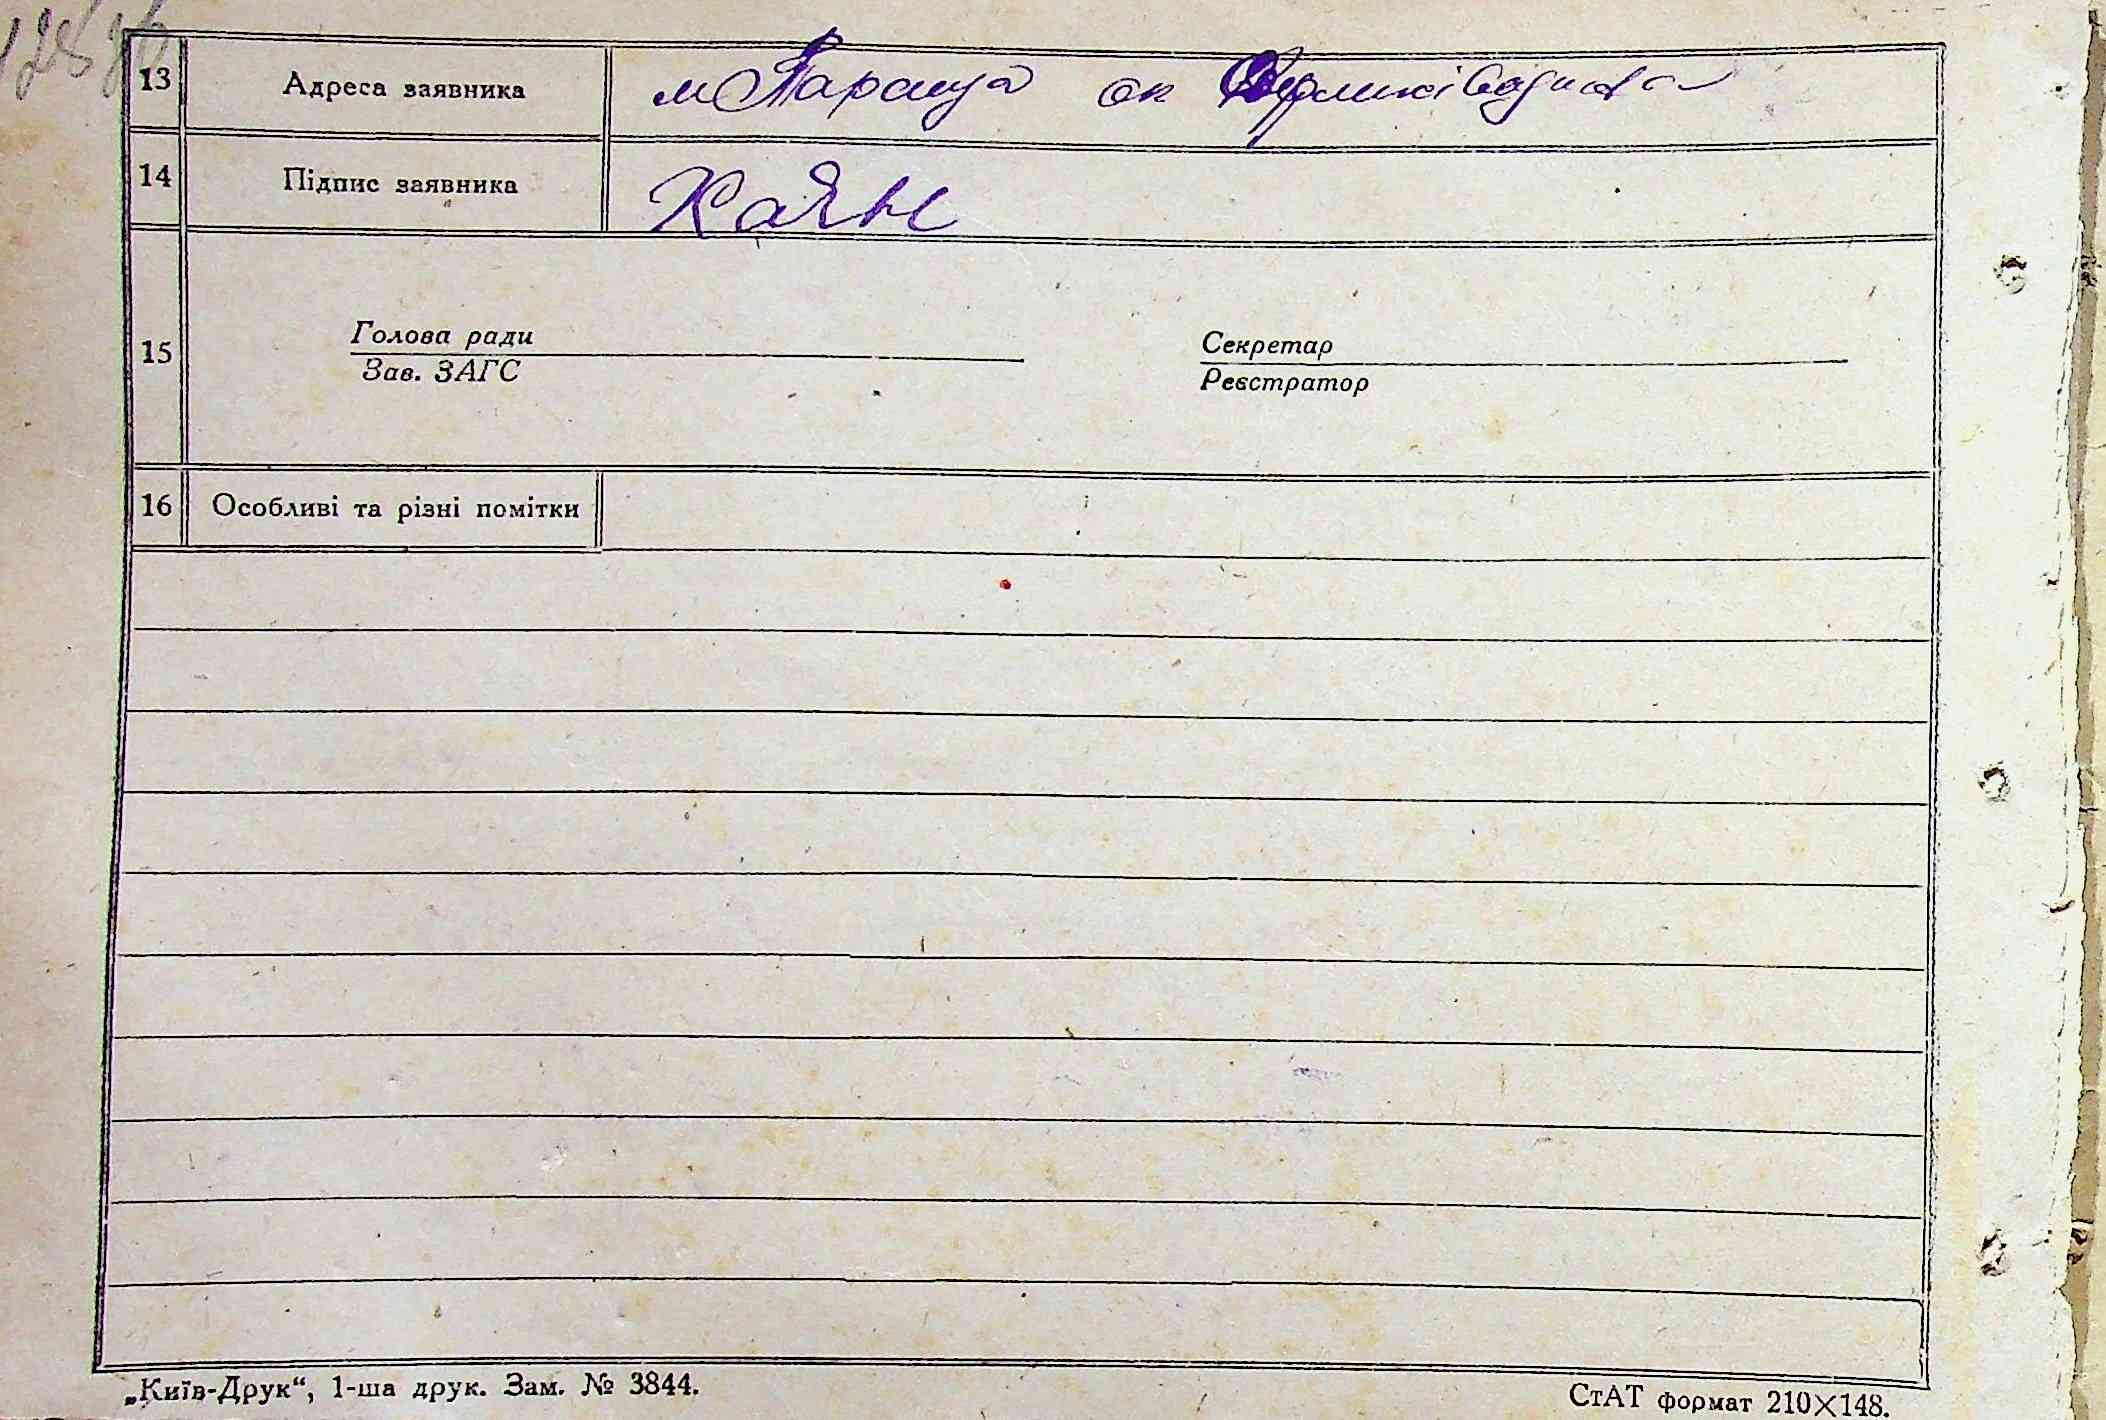 13 Адреса заявника м Тараща ок
14 Підпис заявника Каян
15 Голова ради Секретар
Зав. ЗАГС Реєстратор
16 Особливі та різні помітки
„Київ-Друк“, 1-ша друк. Зам. № 3844. СтАТ формат 210×148.